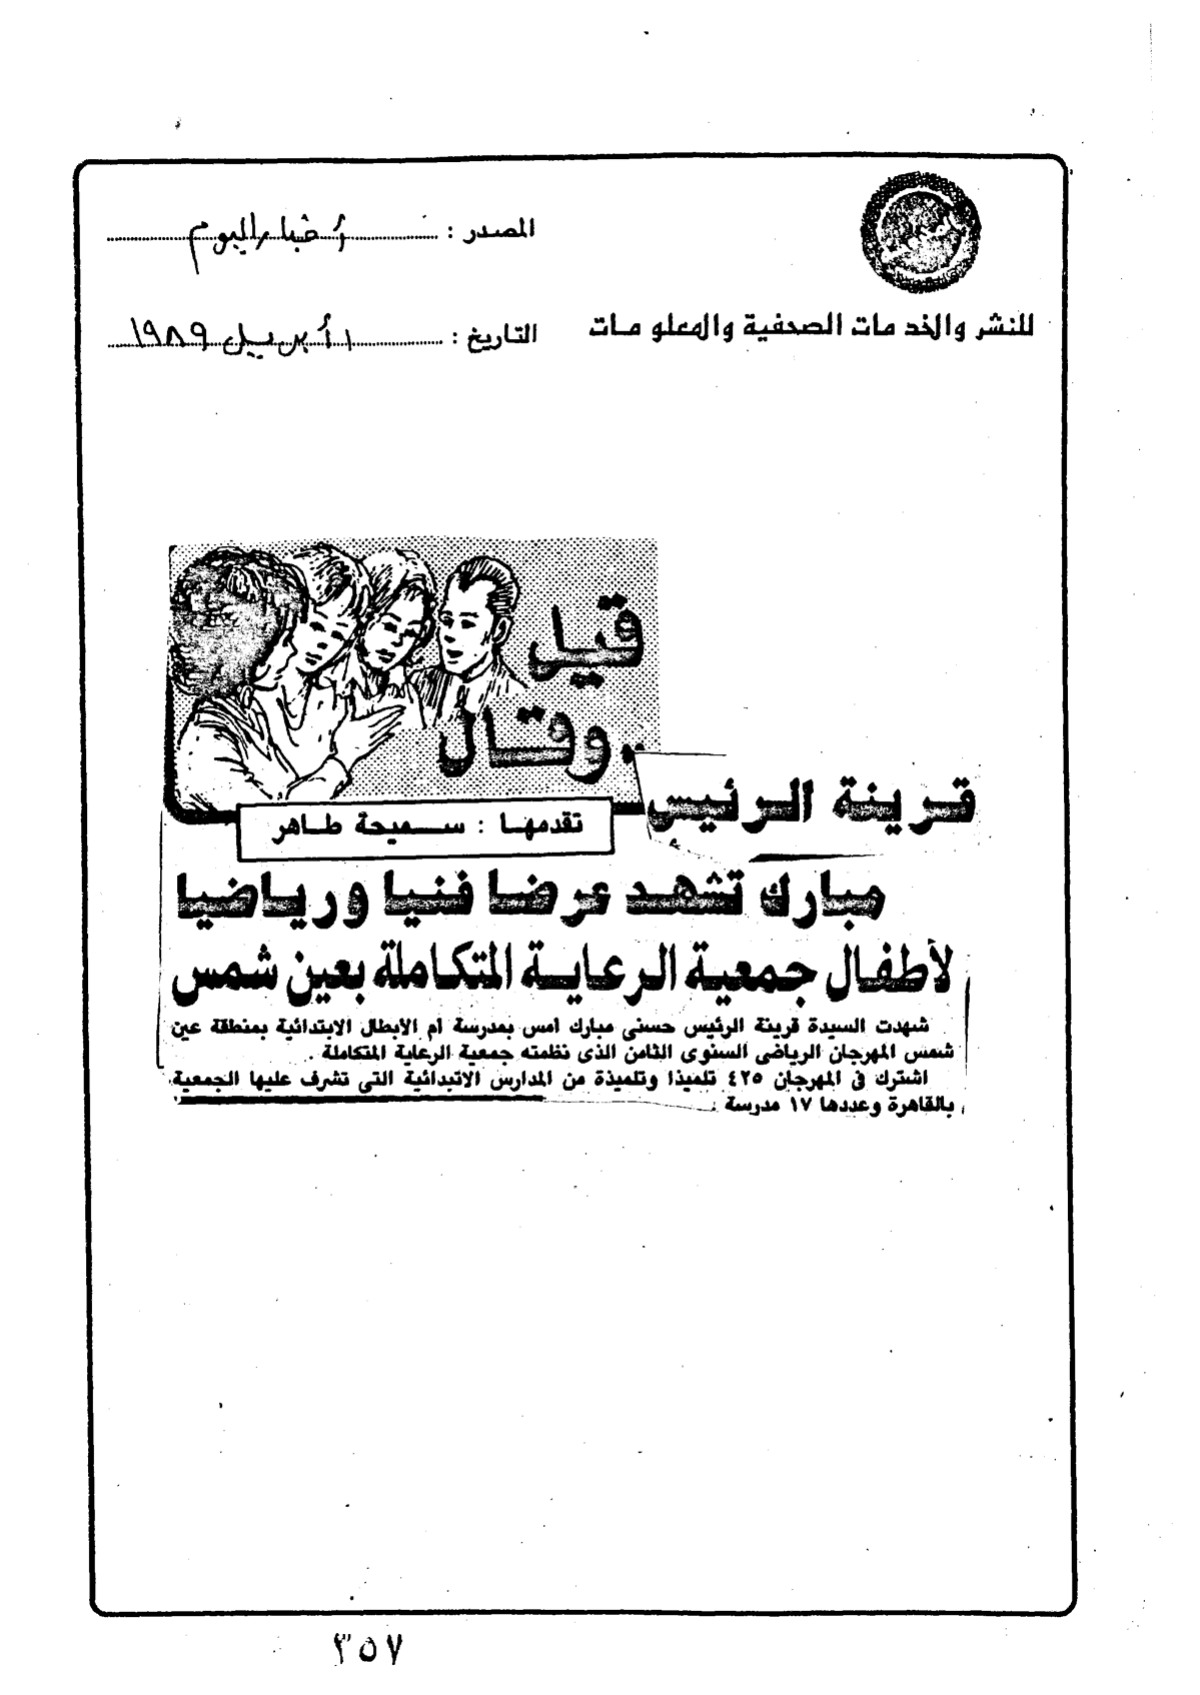 المصدر : أخبار اليوم
للنشر والخدمات الصحفية والمعلومات
التاريخ : ١ أبريل ١٩٨٩
قيل
.. وقال
تقدمها : سميحة طاهر
قرينة الرئيس
مبارك تشهد عرضا فنيا ورياضيا
لأطفال جمعية الرعاية المتكاملة بعين شمس
شهدت السيدة قرينة الرئيس حسنى مبارك امس بمدرسة ام الابطال الابتدائية بمنطقة عين
شمس المهرجان الرياضى السنوى الثامن الذى نظمته جمعية الرعاية المتكاملة .
اشترك فى المهرجان ٤٢٥ تلميذا وتلميذة من المدارس الابتدائية التى تشرف عليها الجمعية
بالقاهرة وعددها ١٧ مدرسة .
٣٥٧